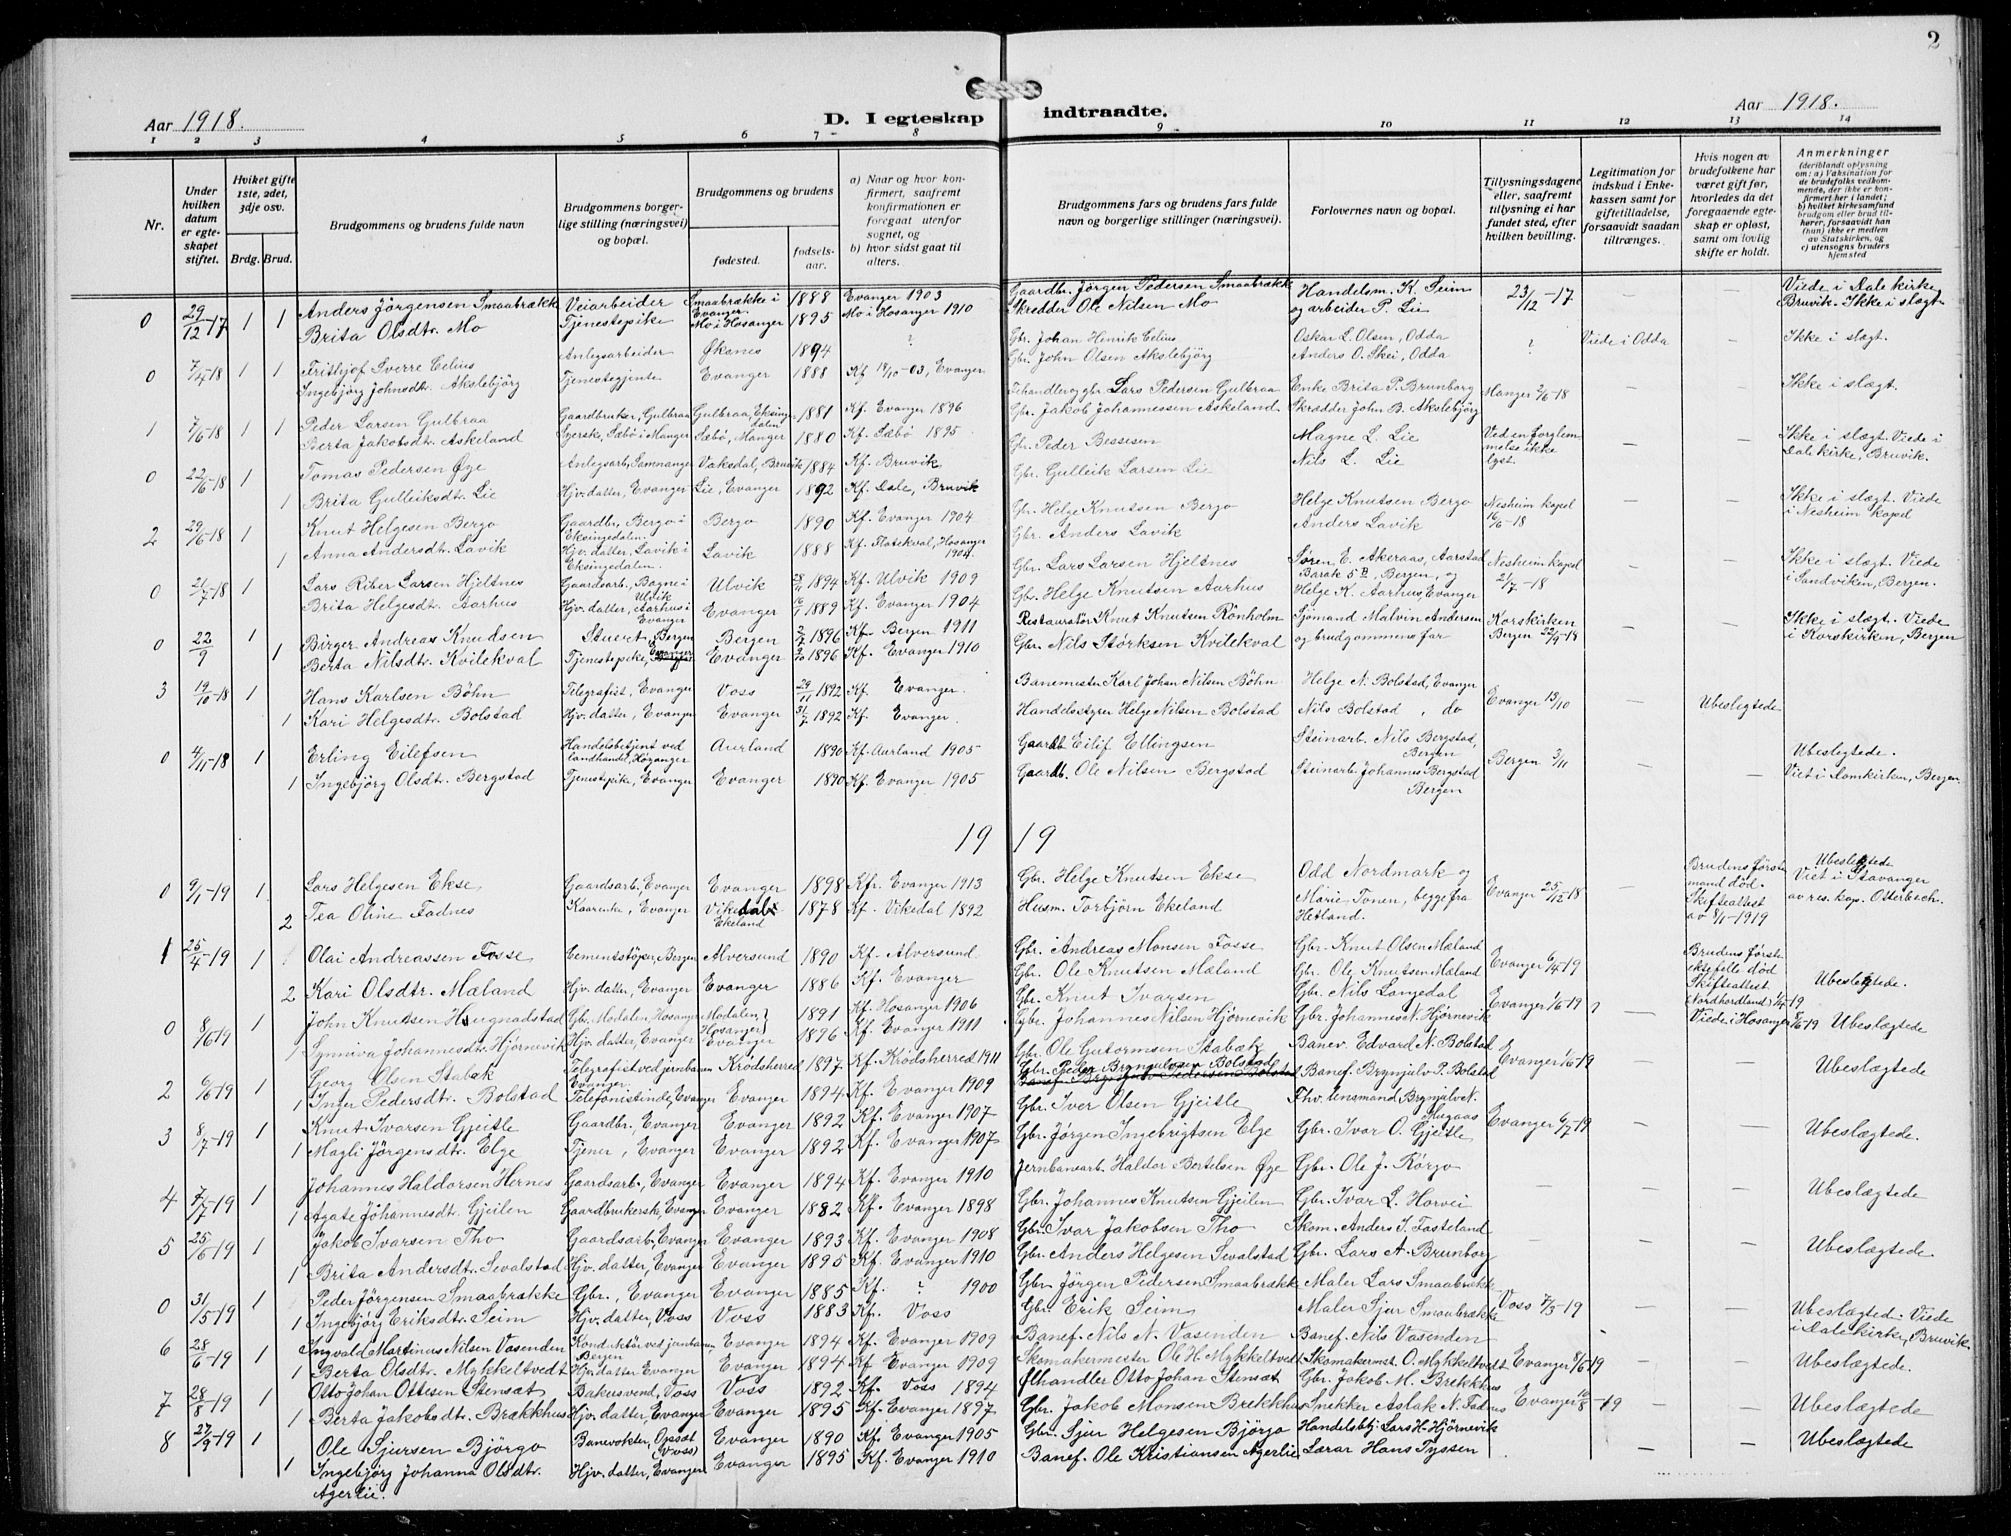 2
Aar 1918.
D. I egteskap indtraadte.
Aar 1918.
1 2 3 4 5 6 7 8 9 10 11 12 13 14
Nr.
Under hvilken datum er egteskapet stiftet.
Hviket gifte 1ste, 2det, 3dje osv.
Brdg. Brud.
Brudgommens og brudens fulde navn
Brudgommens borgerlige stilling (næringsvei) og bopæl.
Brudgommens og brudens
fødested.
fødselsaar.
a) Naar og hvor konfirmert, saafremt konfirmationen er foregaat utenfor sognet, og
b) hvor sidst gaat til alters.
Brudgommens fars og brudens fars fulde navn og borgerlige stillinger (næringsvei).
Forlovernes navn og bopæl.
Tillysningsdagene eller, saafremt tillysning ei har fundet sted, efter hvilken bevilling.
Legitimation for indskud i Enkekassen samt for giftetilladelse, forsaavidt saadan tiltrænges.
Hvis nogen av brudefolkene har været gift før, hvorledes da det foregaaende egteskap er opløst, samt om lovlig skifte er holdt.
Anmerkninger
(deriblandt oplysning om: a) Vaksination for de brudefolks vedkommende, der ikke er konfirmert her i landet; b) hvilket kirkesamfund brudgom eller brud tilhører, forsaavidt han (hun) ikke er medlem av Statskirken, og c) utensogns bruders hjemsted
0 29/12-17 1 1 Anders Jörgensen Smaabrække Veiarbeider Smaabrække i Evanger 1888 Evanger 1903 Gaardbr. Jörgen Pedersen Smaabrække Handelsm. K. Seim 23/12-17 – – Viede i Dale kirke
Brita Olsdtr. Mo Tjenestepike Mo i Hosanger 1895 Mo i Hosanger 1910 Skredder Ole Nilsen Mo og arbeider P. Lie Bruvik. Ikke i slægt.
0 7/4-18 1 1 Frithjof Sverre Celius Anlegsarbeider Økanes 1894 ? Gbr. Johan Henrik Celius Oskar L. Olsen, Odda ? Viede i Odda – Ikke i slægt.
Ingebjörg Johnsdtr. Akslebjörg Tjenestegjente Evanger 1888 Kf 18/10-03, Evanger Gbr. John Olsen Akslebjörg Anders O. Skei, Odda
1 7/6-18 1 1 Peder Larsen Gulbraa Gaardbruker, Gulbraa Gulbraa, Eksingedalen 1881 Kf. Evanger 1896 Lars Pedersen Gulbraa Enke Brita P. Brunborg Manger 2/6-18 – – Ikke i slægt.
Berta Jakobsdtr. Askeland Syerske, Sæbö i Manger Sæbö, Manger 1880 Kf. Sæbö 1895 Gbr. Jakob Johannessen Askeland Skrædder John B. Akslebjörg
0 22/6-18 1 Tomas Pedersen Øye Anlegsarb., Samnanger Vaksdal, Bruvik 1884 Kf. Bruvik Gbr. Peder Bessesen Magne L. Lie Ved en forglemmelse ikke lyst. – – Ikke i slægt. Viede i
1 Brita Gulleiksdtr. Lie Hjv. datter, Evanger Lie, Evanger 1892 Kf. Dale, Bruvik Gbr. Gulleik Larsen Lie Nils L. Lie Dale kirke, Bruvik.
2 29/6-18 1 Knut Helgesen Bergo Gaardbr., Bergo i Eksingedalen. Bergo 1890 Kf. Evanger 1904 Gbr. Helge Knutsen Bergo Helge Knutsen Bergo Nesheim kapel 16/6-18 – – Ikke i slægt. Viede
1 Anna Andersdtr. Lavik Hjv. datter, Lavik i Eksingedalen. Lavik 1888 Kf. Flatekval, Hosanger 1904 Gbr. Anders Lavik Anders Lavik i Nesheim kapel
0 21/7-18 1 Lars Riber Larsen Hjeltnes Gaardsarb., Bagne i Ulvik Ulvik 1894 Kf. Ulvik 1909 Gbr. Lars Larsen Hjeltnes Sören E. Akeraas, Aarstad Barak 5B, Bergen, og Nesheim kapel 21/7-18 – – Ikke i slægt. Viede
Brita Helgesdtr. Aarhus Hjv. datter, Aarhus i Evanger Evanger 1889 Kf. Evanger 1904 Gbr. Helge Knutsen Aarhus Helge K. Aarhus, Evanger i Sandviken, Bergen.
0 22/9 1 Birger Andreas Knudsen Stuert, Bergen Bergen 1896 Kf. Bergen 1911 Restauratör Knut Knutsen Rönholm Sjömand Malvin Andersen Korskirken – – Ikke i slægt. Viede
1 Berta Nilsdtr. Kvilekval Tjenestepike, Evanger Evanger 1896 Kf. Evanger 1910 Gbr. Nils Störksen Kvilekval og brudgommens far Bergen 22/9-18 i Korskirken, Bergen
3 19/10-18 1 Hans Karlsen Böhn Telegrafist, Evanger Voss 29/11 1892 Kf. Evanger. Banemester Karl Johan Nilsen Böhn Helge N. Bolstad, Evanger Evanger 13/10 – Ubeslegtede
1 Kari Helgesdtr. Bolstad Hjv. datter, Evanger Evanger 31/7 1892 Kf. Evanger. Handelsstyrer Helge Nilsen Bolstad Nils Bolstad, do
0 4/11-18 1 Erling Eilefsen Handelsbetjent ved landhandel, Høyanger Aurland 1890 Kf. Aurland 1905 Gaardb. Eilif Ellingsen Steinarb. Nils Bergstad, Bergen Bergen 3/11 – – Ubeslegtede.
1 Ingebjörg Olsdtr. Bergstad Tjenestepike, Evanger Evanger 1890 Kf. Evanger 1905 Gaardb. Ole Nilsen Bergstad Steinarb. Johannes Bergstad Bergen Viet i Domkirken, Bergen.
19 19
0 9/1-19 1 Lars Helgesen Ekse Gaardsarb., Evanger Evanger 1898 Kfr. Evanger 1913 Gbr. Helge Knutsen Ekse Odd Nordmark og Evanger 25/12-18 – Brudens förste mand död. Ubeslegtede Viet i Stavanger
2 Tea Oline Fadnes Kaarenke, Evanger Vikedal Ekeland 1878 Kf. Vikedal 1892 Husm. Torbjörn Ekeland Marie Tonen, begge fra Hetland. Skifteattest av 8/1-1919 av res. kap. Otterbech.
1 25/4-19 1 Olai Andreassen Fosse Cementstöper, Bergen Alversund 1890 Kf. Alversund Gbr. Andreas Monsen Fosse Gbr. Knut Olsen Mæland Evanger 6/4-19 – Brudens förste ektefelle död
2 Kari Olsdtr. Mæland Hjv. datter, Evanger Evanger 1886 Kf. Evanger Gbr. Ole Knutsen Mæland Gbr. Ole Knutsen Mæland Skifteattest (Nordhordland) 1/4-19 Ubeslegtede.
0 8/6-19 1 John Knutsen Haugnadstad Gbr. Modalen, Hosanger Modalen, Hosanger 1891 Kf. Hosanger 1906 Gbr. Knut Ivarsen Gbr. Nils Langedal Evanger 1/6-19 ? – Viede i Hosanger 8/6-19 Ubeslægtede
1 Synniva Johannesdtr. Hjörnevik Hjv. datter, Evanger Evanger 1896 Kf. Evanger 1911 Gbr. Johannes Nilsen Hjörnevik Gbr. Johannes N. Hjörnevik
2 6/6-19 1 Georg Olsen Stabæk Telegrafist ved jernbanen Evanger Krödsherred 1897 Kf. Krödsherred 1911 Gbr. Ole Gutormsen Stabæk Banev. Edvard N. Bolstad Evanger 1/6-19 – – Ubeslægtede
1 Inger Pedersdtr. Bolstad Telefonistinde, Evanger Evanger 1894 Kf. Evanger 1909 Gbr. Peder Brynjulvsen Bolstad Banef. Brynjulv P. Bolstad
3 8/7-19 1 Knut Ivarsen Gjeitle Gaardbr., Evanger Evanger 1892 Kf. Evanger 1907 Gbr. Iver Olsen Gjeitle Fhv. lensmand Brynjulv N. Mugaas Evanger 6/7-19 – – Ubeslægtede.
1 Magli Jörgensdtr. Elge Tjener, Evanger Evanger 1892 Kf. Evanger 1907 Gbr. Jörgen Ingebrigtsen Elge Gbr. Ivar O. Gjeitle
4 7/7-19 1 Johannes Haldorsen Hernes Gaardsarb., Evanger Evanger 1894 Kf. Evanger 1910 Jernbanearb. Haldor Bertelsen Øye Gbr. Ole J. Rörgo – – – Ubeslægtede
1 Agate Johannesdtr. Gjeilen Gaardbrukerske, Evanger Evanger 1882 Kf. Evanger 1898 Gbr. Johannes Knutsen Gjeilen Gbr. Ivar L. Horvei
5 25/6-19 1 Jakob Ivarsen Tho Gaardsarb., Evanger Evanger 1893 Kf. Evanger 1908 Gbr. Ivar Jakobsen Tho Skom. Anders I. Fasteland – – – Ubeslægtede
1 Brita Andersdtr. Sevalstad Hjv. datter, Evanger Evanger 1895 Kf. Evanger 1910 Gbr. Anders Helgesen Sevalstad Gbr. Lars A. Brunborg
0 31/5-19 1 Peder Jörgensen Smaabrække Gbr., Evanger Evanger 1885 Kf. ? 1900 Gbr. Jörgen Pedersen Smaabrække Maler Lars Smaabrække Voss 7/5-19 – – Ubeslægtede. Viede
1 Ingebjörg Eriksdtr. Seim Hjv. datter, Voss Voss 1883 Kf. Voss Gbr. Erik Seim Maler Sjur Smaabrække i Dale kirke, Bruvik.
6 28/6-19 1 Ingvald Martinus Nilsen Vasenden Konduktör ved jernbanen, Bergen Evanger 1894 Kf. Evanger 1909 Banef. Nils N. Vasenden Banef. Nils Vasenden Evanger 8/6-19 – – Ubeslægtede.
1 Berta Olsdtr. Mykkeltvedt Hjv. datter Evanger Evanger 1894 Kf Evanger 1909 Skomakermester Ole H. Mykkeltvedt Skomakermst. O. Mykkeltvedt
7 28/8-19 1 Otto Johan Ottesen Stensæt Bakersvend, Voss Voss 1892 Kf. Voss 1894 Ølhandler Otto Johan Stensæt Gbr. Jakob M. Brekkhus Evanger 10/8-19 – – Ubeslægtede
1 Berta Jakobsdtr. Brækkhus Hjv. datter, Evanger Evanger 1895 Kf. Evanger 1897 Gbr. Jakob Monsen Brekkhus Snekker Aslak N. Fadnes
8 27/9-19 1 Ole Sjursen Björgo Banevokter, Opsæt (Voss) Evanger 1890 Kf. Evanger 1905 Gbr. Sjur Helgesen Björgo Handelsbtj. Lars H. Hjörnevik – – Ubeslægtede
1 Ingebjörg Johanna Olsdtr. Agerlie. Hjv. datter, Evanger Evanger 1895 Kf. Evanger 1910 Banef. Ole Kristiansen Agerlie Lærar Hans Tyssen